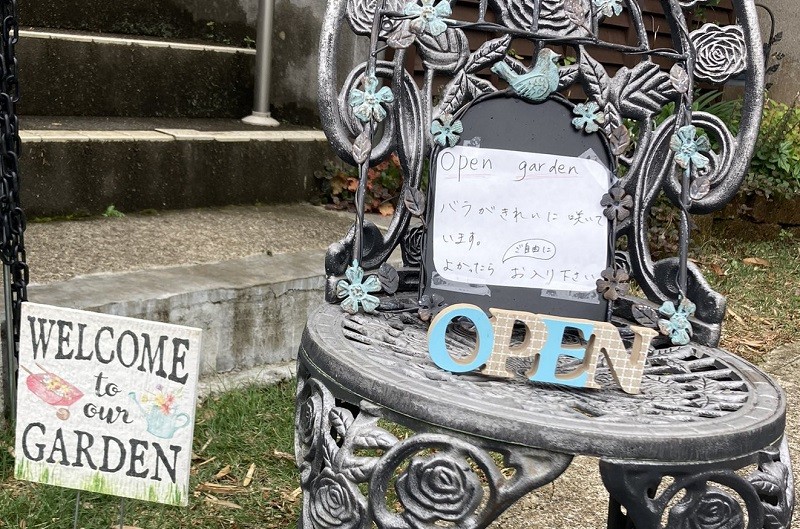 Open garden
バラがきれいに咲いて
います。
ご自由に
よかったら お入り下さい
OPEN
WELCOME
to
our
GARDEN